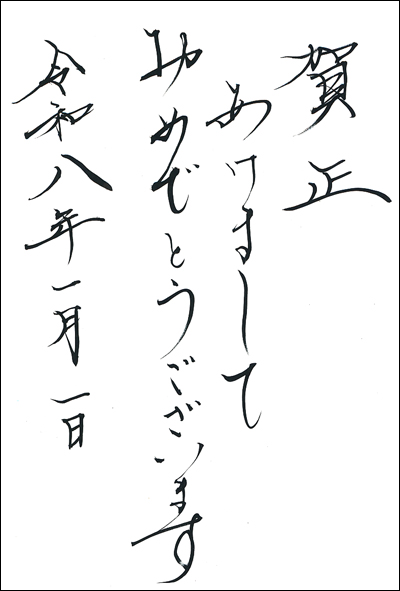 賀正
あけまして
おめでとうございます
令和八年一月一日